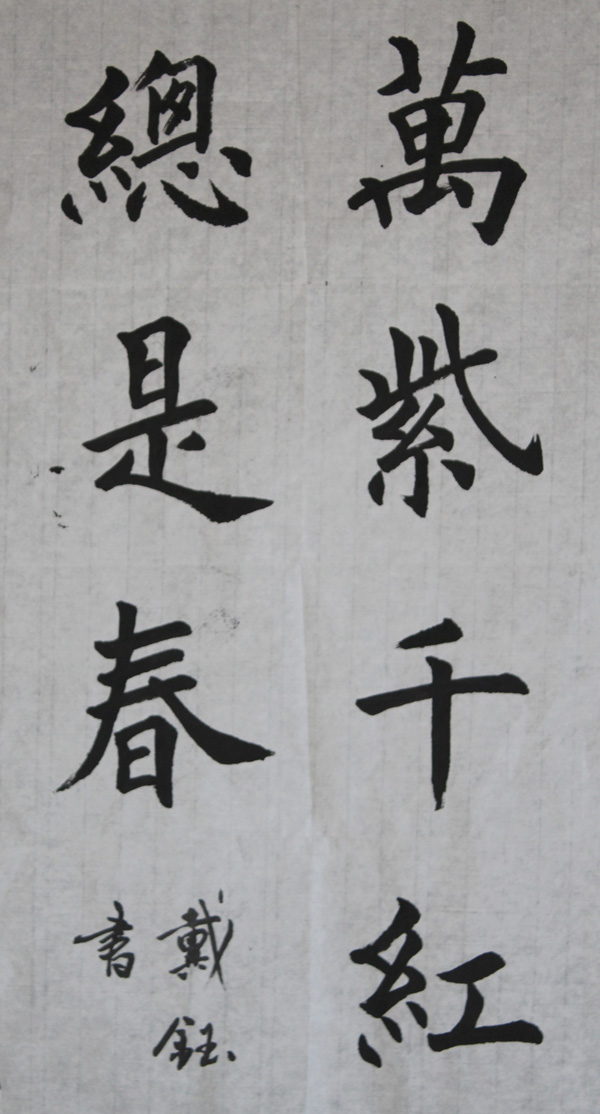 萬紫千紅
總是春
戴鈺
書